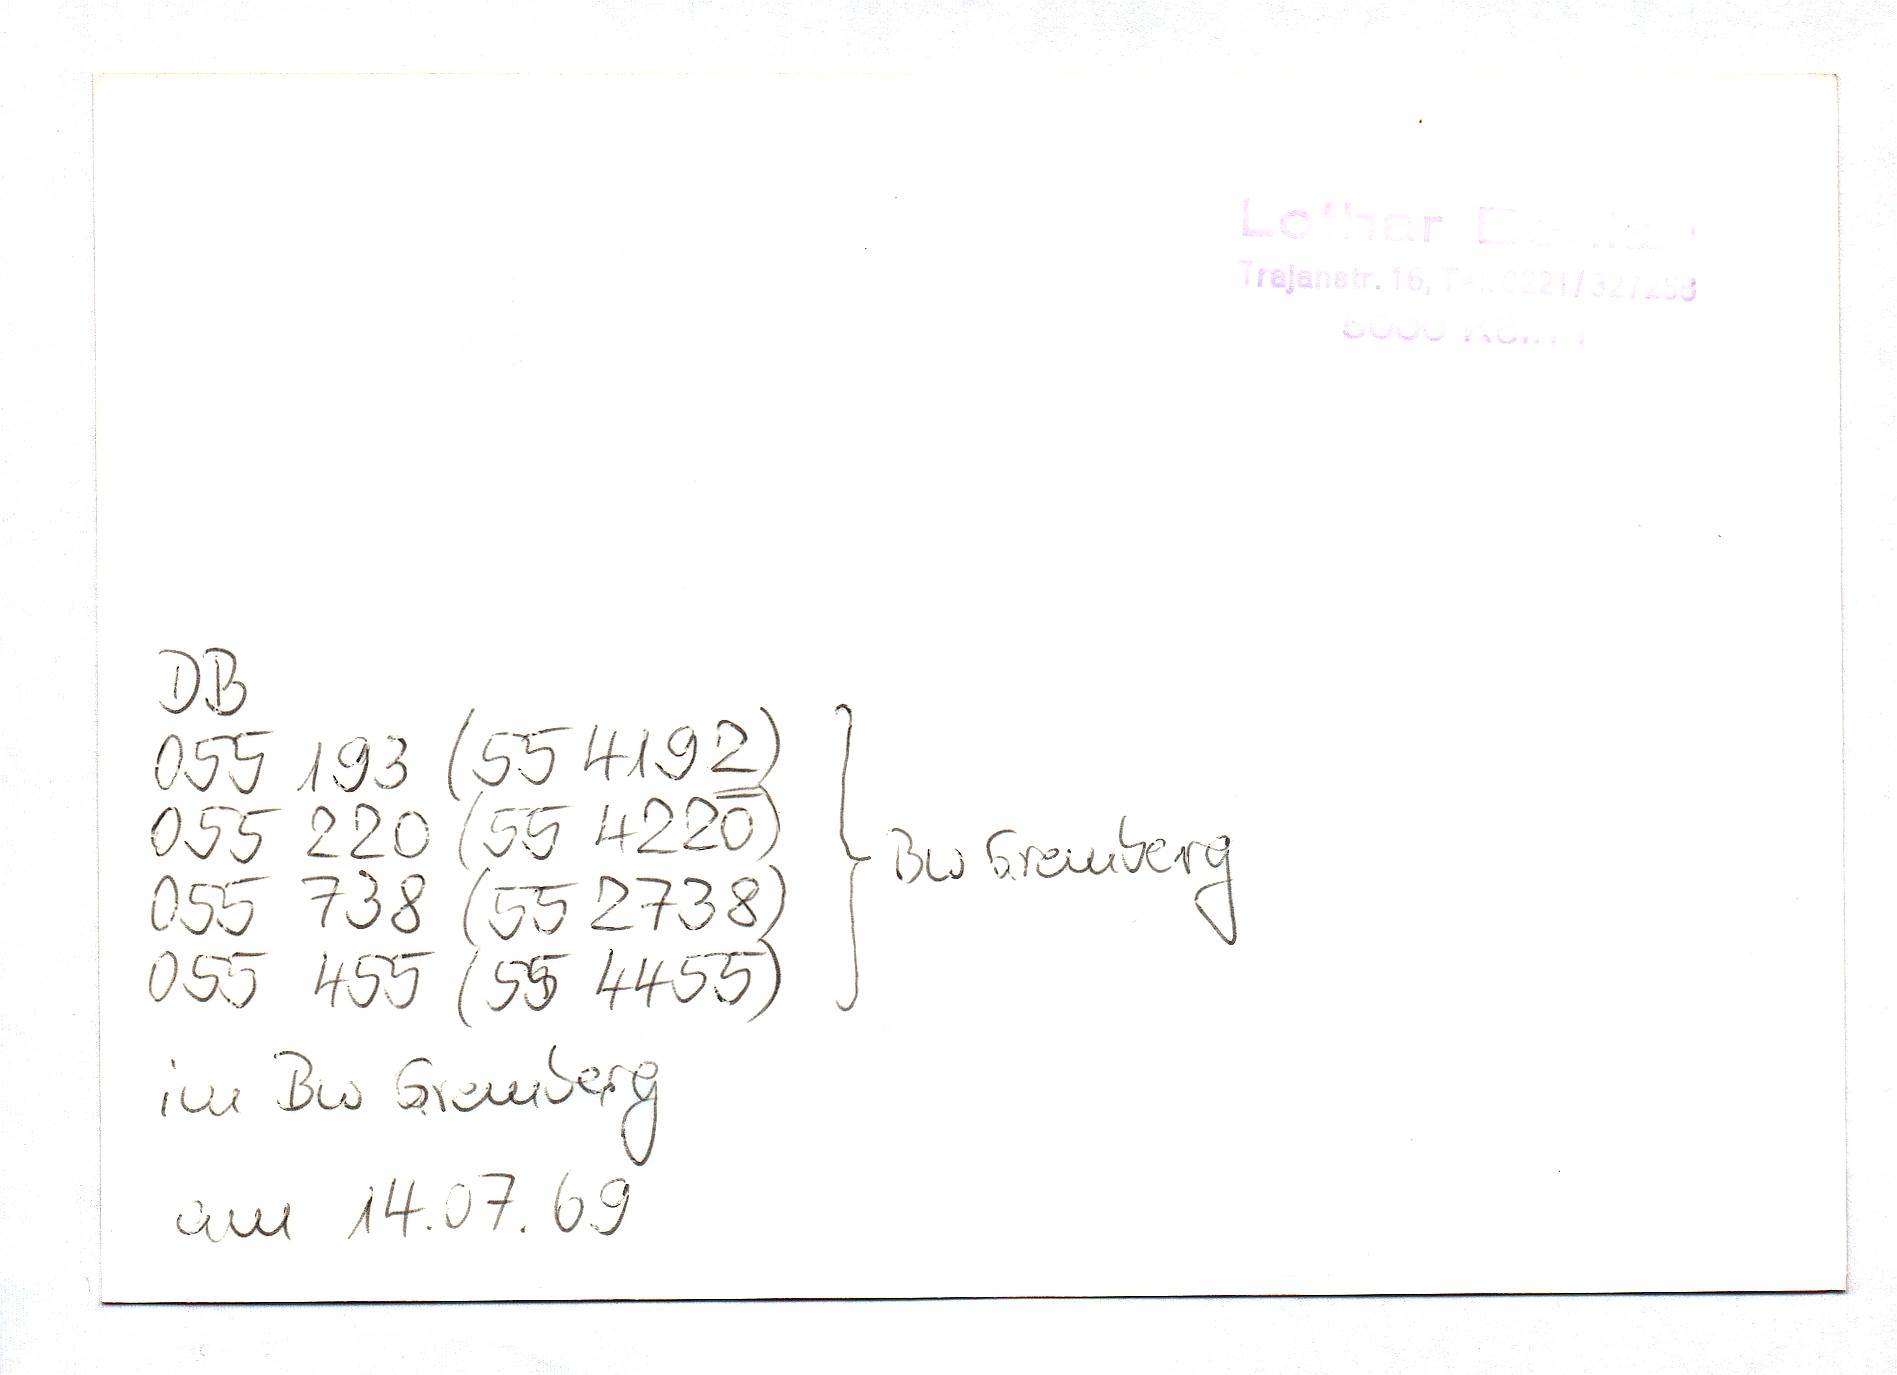 Lothar
Trajanstr. 16, Tel. 0221/327258
5000 Köln 1
DB
055 193 (55 4192)
055 220 (55 4220)
055 738 (55 2738)
055 455 (55 4455)
} Bw Gremberg
im Bw Gremberg
am 14.07.69